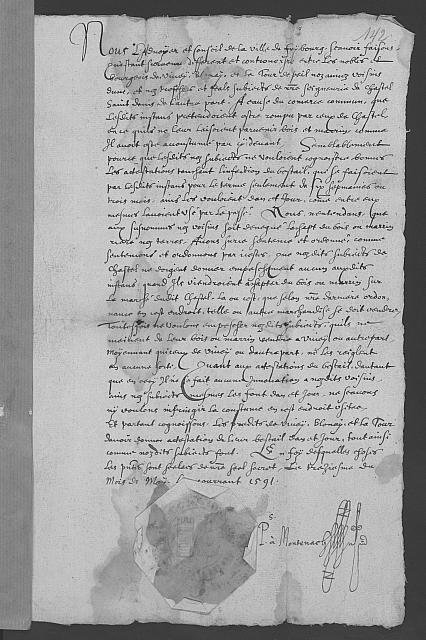 142
Nous L'advoyer et Conseil de la ville de frybourg, scavoir faisons
questant survenu different et controversie entre Les nobles et
bourgeois de vivey, blonay, et La Tour de peil noz amez voisins
dune, et noz et feals subiects de nre seigneurie de Chastel
Saint denis de L'autre part. A cause du comerce commun, que
Lesdits instans pretendoient estre rompu par ceux de Chastel
en ce quilz ne Leur laissoient parvenir bois et marrins comme
Il avoit este accoustume par cy devant. Semblablement
pource que Lesdits noz subiects ne vouloient cognoistre bonnes
Les attestations touchant L'infection du bestail, que se faisoient
par Lesdits instans pour Le terme seulement de six sepmaines ou
trois mois, ains Les vouloient dan et Jour, come entre eux
mesmes Lavoient use par Le passe. Nous, nentendans, que
aux susnommes noz voisins soit denegue Lachapt du bois ou marrin
riere noz terres. Avons sur ce sentencie et ordonne, comme
sentencions et ordonnons par cestes, que nozdits subiects de
Chastel ne doigent donner empeschement aucun auxdits
instans, quand Ilz viendroient achapter du bois ou marrin sur
La marche dudit Chastel, La ou cest, que selon nre derniere ordon,
nance en est endroit, telle ou aultre marchandise se doit vendre,
Toutesfois ne voulons empescher nozdits subiects, quilz ne
meinent de Leur bois ou marrin vendre a vivey ou autre part
Moyennant quiceux de vivey ou dautre part, ne Les
en aucune sorte. Quant aux attestations du bestail, dautant
que en cecy Il ne se fait aucune Innovation a nozdits voisins
ains noz subiects mesmes Les font dan et Jour, ne scavons
ny voulons infringir La coustume en cest endroit usitee
Et partant cognoissons, Les predits de vivey, blonay, et La Tour
devoir donner attestation de Leur bestail dan et Jour, tout ainsi
comme nozdits subiects font. En foy desquelles choses
Les pntes sont scelees de nre seel secret. Le treziesme du
Mois de May, courrant 1591.
P. à Montenach